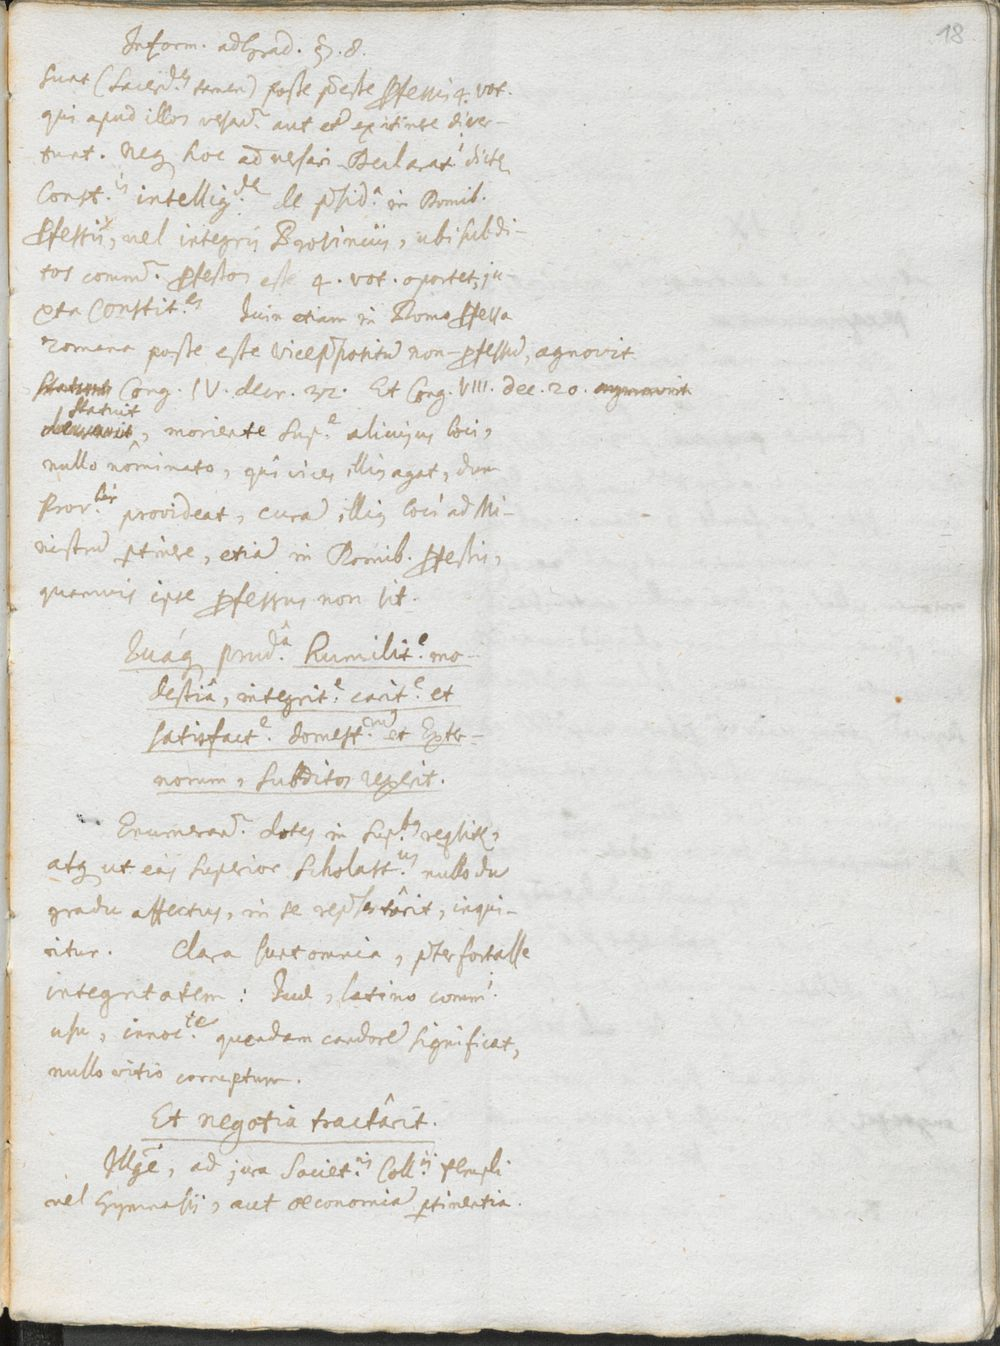 18
Inform. ad Grad. §. 8.
sunt (Sacerd.es tamen) posse p̄esse Professis 4. vot.
qui apud illos versant.r aut et
tunt. Neq; hoc adversari Declarat.i dictæ
Const.is intellig.dæ de in Domib.
Professis, vel integris Provinciis, ubi subdi-
tos comm.r professos esse 4. vot. oportet, ju
xta Constit.es Quin etiam in Domo Professa
Romana posse esse Vicep̄positū non-professū, agnovit
Cong. IV. decr. 32. Et Cong. VIII. dec. 20.
statuit
, moriente Sup.e alicujus loci,
nullo nôminato, qui vices illius agat, dum
Prov.lis provideat, curā illius loci ad Mi-
nistrū ptinere, etiā in Domib. Professis,
quamvis ipse professus non sit.
Quáq; prud.â humilit.e mo-
destiâ, integrit.e carit.e et
satisfact.e domest.um et Exter-
norum, subditos rexerit.
Enumerant.r dotes in Sup.bus reqsitæ,
atq; ut eas Superior Scholast.us nullo dū
gradu affectus, in se rep̄sentârit, inqui-
ritur. Clara sunt omnia, p̄ter fortasse
integritatem: Quæ, latino comm.i
usu, innoc.tæ quendam candorē significat,
nullo vitio corruptum.
Et negotia tractârit.
Illa, ad jura Societ.is Coll.ii Templi
vel Gymnasii, aut œconomiā ptinentia.